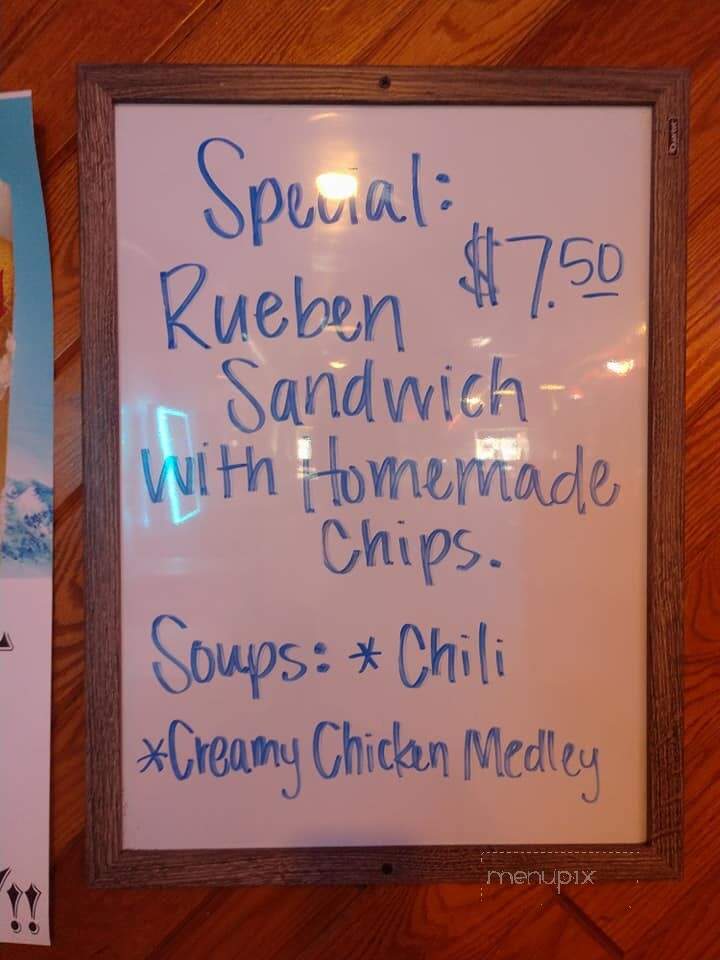 Special:
$7.50
Rueben
Sandwich
with Homemade
Chips.
Soups: * Chili
*Creamy Chicken Medley
Quartet
menupix
!!